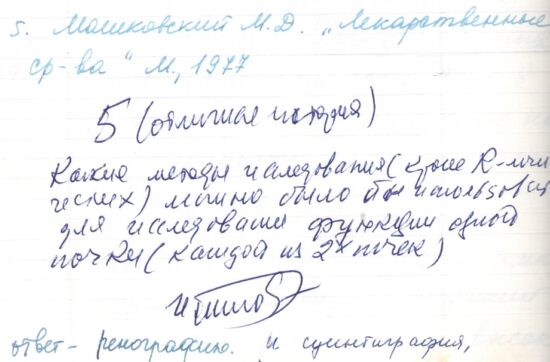 5. Машковский М.Д. „Лекарственные
ср-ва“ М., 1977
5 (отличная история)
Какие методы исследования (кроме R-логи
ческих) можно было бы использовать
для исследования функции одной
почки (каждой из 2х почек)
ответ – ренографию. и сцинтиграфия,